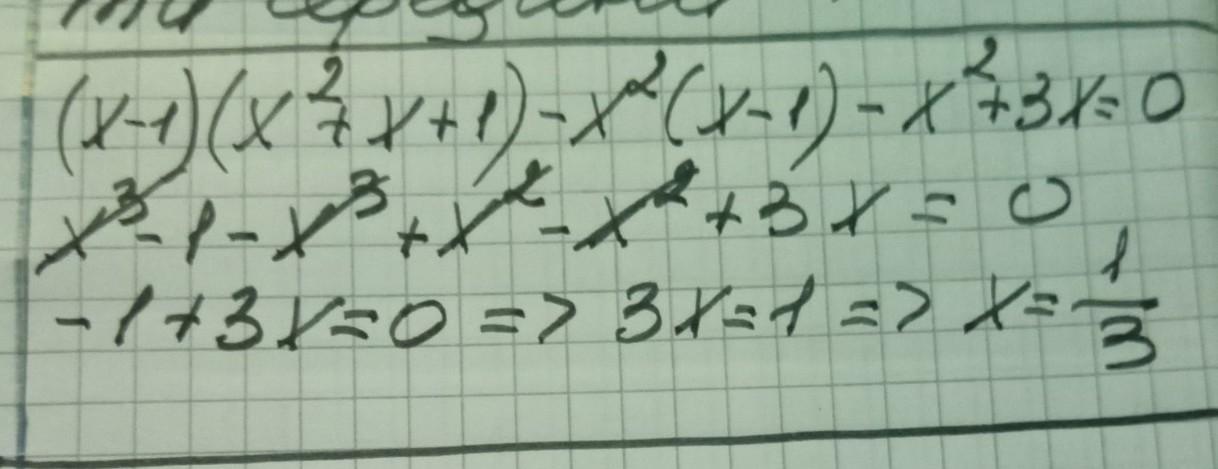 (x-1)(x²+x+1)-x²(x-1)-x²+3x=0
x³-1-x³+x²-x²+3x=0
-1+3x=0 => 3x=1 => x=1/3